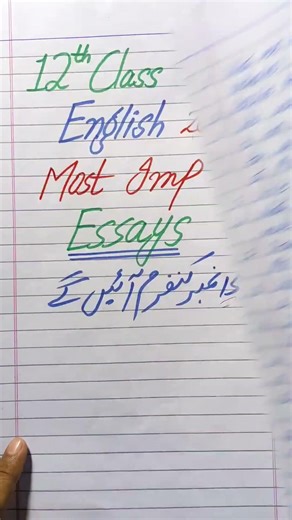 12th Class
English 2
Most Imp
Essays
نمبر کنفرم آئیں گے